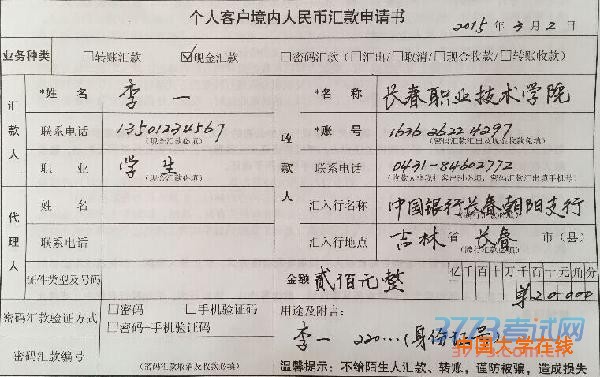 个人客户境内人民币汇款申请书
2015年3月2日
业务种类 □转账汇款 ☑现金汇款 □密码汇款(□汇出/□取消/□现金收款/□转账收款)
汇款人 *姓名 李一 收款人 *名称 长春职业技术学院
联系电话 13501234567 *账号 1636 2622 4297
(现金汇款必填) (密码汇款汇出及现金收款免填)
职业 学生 联系电话 0431-84602772
(现金汇款必填)
代理人 姓名 汇入行名称 中国银行长春朝阳支行
联系电话 汇入行地点 吉林省 长春 市(县)
证件类型及号码 金额 贰佰元整 亿千百十万千百十元角分
¥20000
密码汇款验证方式 □密码 □手机验证码 用途及附言:
□密码+手机验证码 李一 220……(身份证号)
密码汇款编号
(密码汇款取消及收款必填) 温馨提示:不给陌生人汇款、转账,谨防被骗,造成损失
3773考试网
中国大学在线